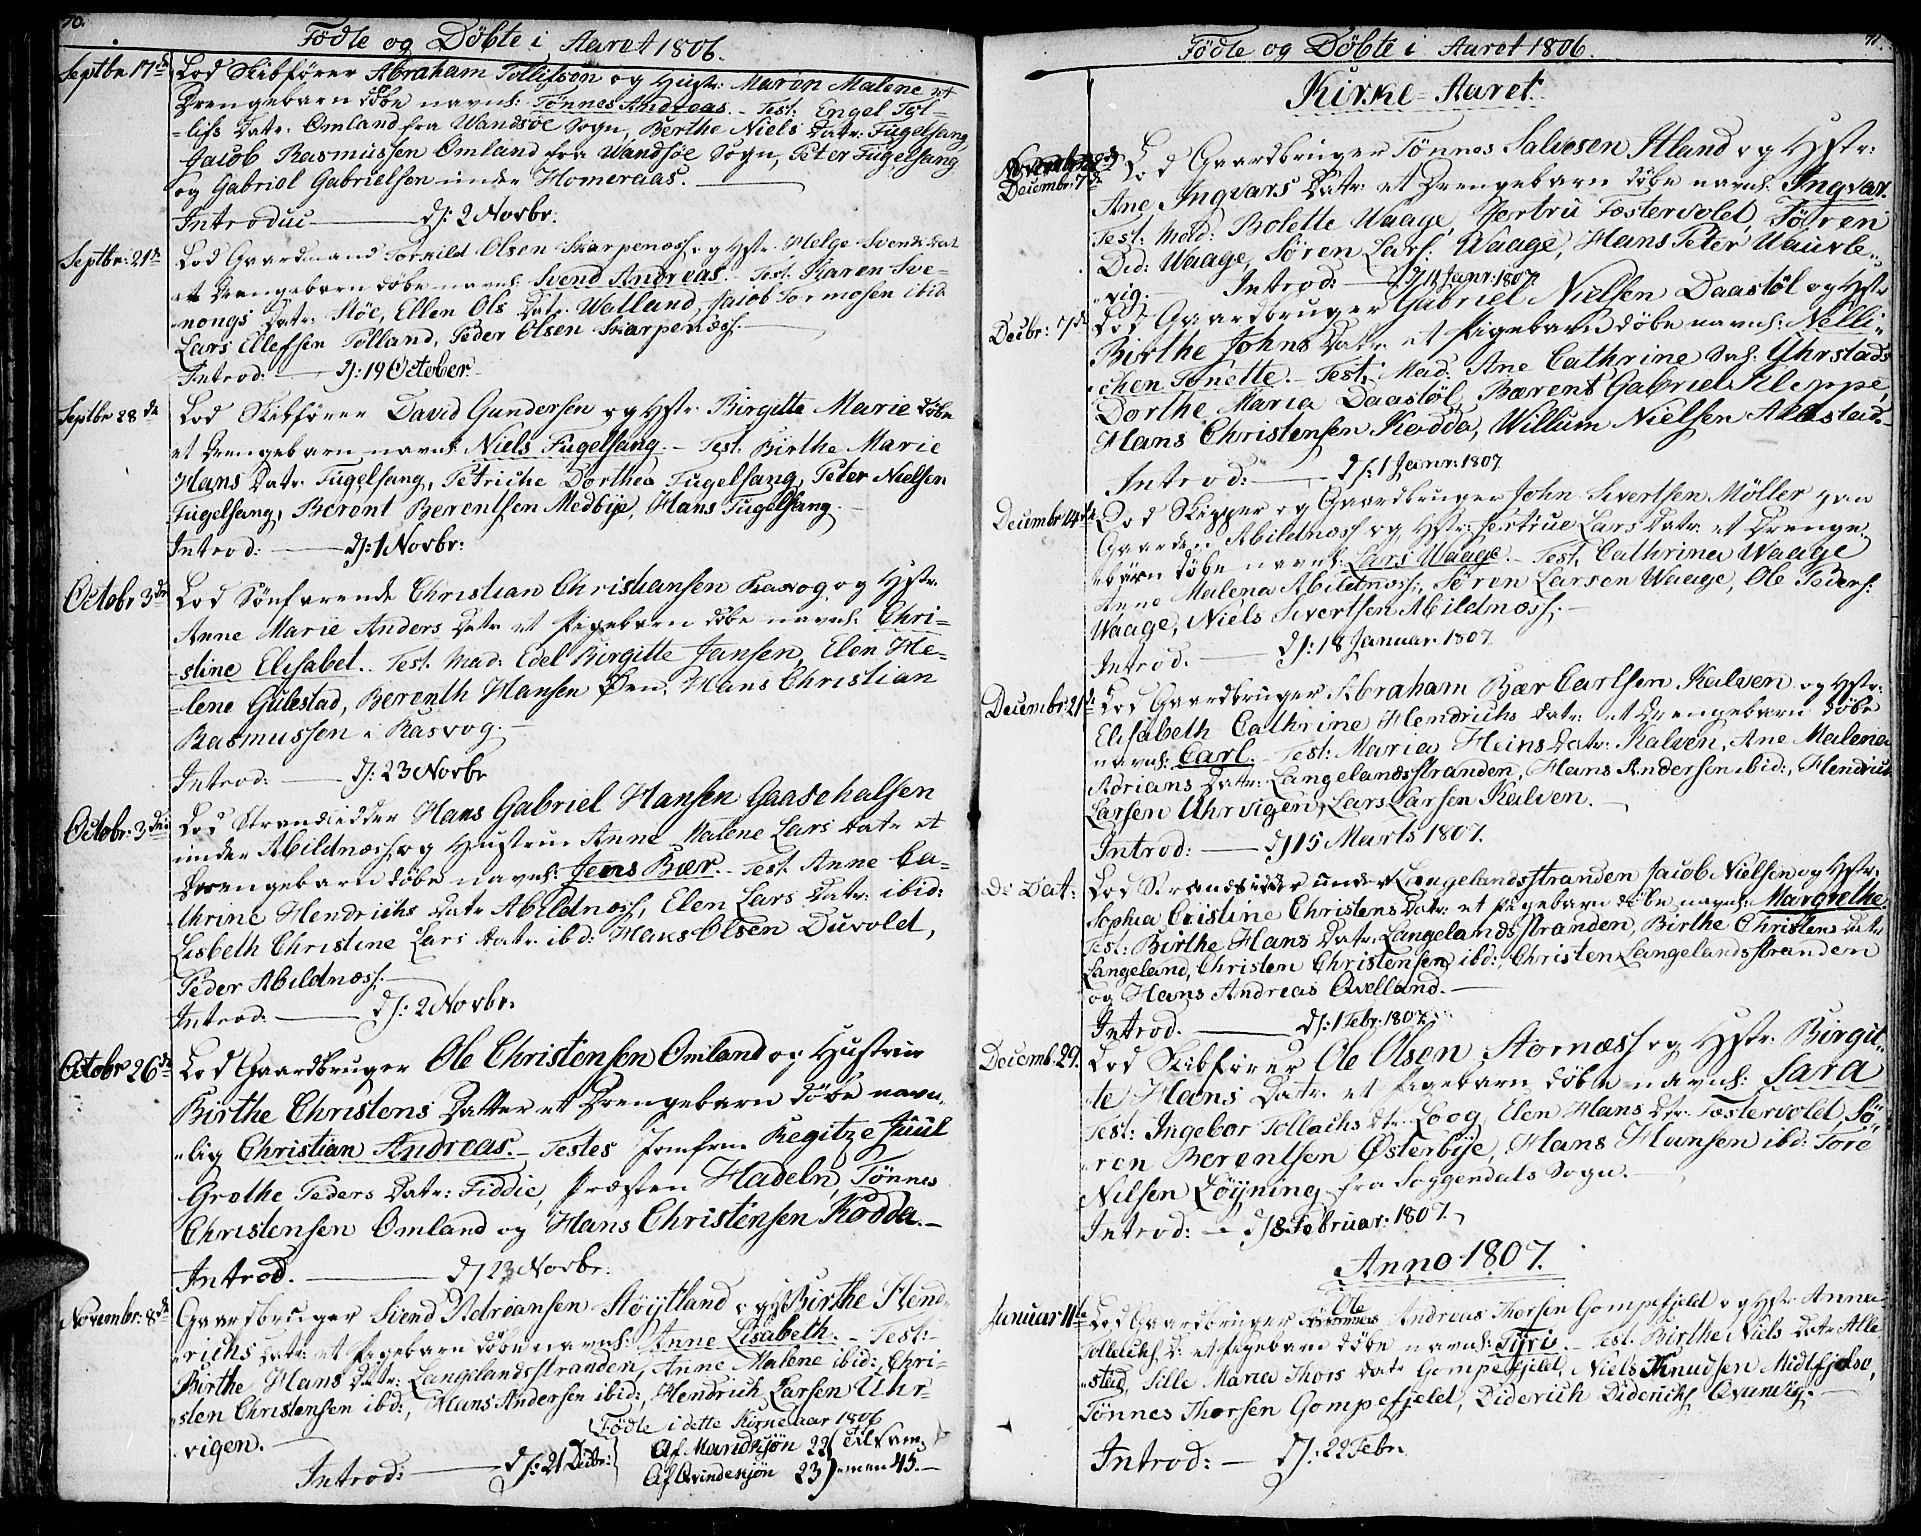 70.
Fødte og Døbte i Aaret 1806.
Septbr 17de Lod Skibfører Abraham Tollifson og Hustr: Maren Malene et
Drengebarn døbe navnl: Tønnes Andreas. - Test: Engel Tol-
-lifs Datr. Omland fra Wandsøe Sogn, Berthe Niels Datr: Fugelsang
Jacob Rasmussen Omland fra Wandsøe Sogn, Peter Fugelsang
og Gabriel Gabrielsen under Homeraas.
Introduc ——— d: 2 Novbr.
Septbr: 21de Lod Gaardmand Torkild Olsen Skarpenæss og Hstr. Helge Svends Dat
et Drengebarn døbe navnl: Svend Andreas. - Test. Karen Sve-
nongs Datr. Støe, Ellen Ols Datr. Watland, Jacob Tormosen ibid
Lars Ellefsen Tolland, Peder Olsen Skarpenæss.
Introd: — d: 19 October.
Septbr 28de Lod Skibfører David Gundersen og Hstr. Birgitte Marie døbe
et Drengebarn navnl: Niels Fugelsang. - Test. Birthe Marie
Hans Datr. Fugelsang, Petriche Dorthea Fugelsang, Peter Nielsen
Fugelsang, Berent Berentsen Medbije, Hans Fugelsang.
Introd: — d: 1 Novbr:
Octobr 3de Lod Sønfarende Christian Christiansen Rasvog og Hstr.
Anne Marie Anders Datr et Pigebarn døbe navnl: Chri-
stine Elisabet. Test. Mad: Edel Birgitte Jansen, Elen He-
-lene Gulestad, Berenth Hansen Øen, Hans Christian
Rasmussen i Rasvog. -
Introd: — d: 23 Novbr
Octobr: 3de Lod Strandsidder Hans Gabriel Hansen Gaasehalsen
under Abildnæss og Hustrue Anne Malene Lars Datr et
Drengebarn døbe navnl: Jens Bær. - Test. Anne Ca-
thrine Hendrichs Datr Abildnæss, Elen Lars Datr: ibid:
Lisbeth Christine Lars Datr. ibd: Hans Olsen Duvold,
Peder Abildnæss.
Introd. — d: 2 Novbr.
Octobr 26de Lod Gaardbruger Ole Christensen Omland og Hustrue
Birthe Christens Datter et Drengebarn døbe navn
„lig Christian Andreas. - Testes Jomfrue Regitze Juul
Grethe Peders Datr: Fiddie, Præsten Hadeln, Tønnes
Christensen Omland og Hans Christensen Rødda. -
Introd. — d 23 Novbr.
Novembr: 8de Gaardbruger Svend Adreansen Støytland og H: Birthe Hend-
richs Datr: et Pigebarn døbe navnl: Anne Lisabeth. - Test:
Birthe Hans Datr. Langelandsstranden, Anne Malene ibid:, Chri-
sten Christensen ibd:, Hans Andersen ibid:, Hendrich Larsen Uhr-
vigen. -
Introd: — d: 21 Decbr:
Fødte i dette Kirkeaar 1806
Af Mandkjøn 22 tilsam-
Af Qvindekjøn 23 -men 45.
71.
Fødte og Døbte i Aaret 1806.
Kirke-Aaret.
Decembr: 7de Lod Gaardbruger Tønnes Salvesen Itland og Hstr:
Ane Ingvars Datr: et Drengebarn døbe navnl. Ingvar.
Test. Mad: Bolette Waage, Jertru Fæstervold, Søren
Did: Waage, Søren Lars: Waage, Hans Peter Uaurle-
„vig. - Introd: — d 11 Janr. 1807.
Decbr: 7de Lod Gaardbruger Gabriel Nielsen Daastøl og Hstr
Birthe Johns Datr. et Pigebarn døbe navnl: Nelli-
chen Tonette. - Test: Mad: Ane Cathrine Sal. Uhrstads
Dorthe Maria Daastøl, Bærent Gabriel Kleppe,
Hans Christensen Rødda, Willum Nielsen Allestad. -
Introd: — d: 1 Janr: 1807
Decembr 14de Lod Skipper og Gaardbruger John Sivertsen Møller paa
Gaarden Abildnæss og Hstr: Jertrue Lars Datr. et Drenge-
-barn døbe navnl: Lars Waage. - Test. Cathrina Waage
Anne Malena Abildnæss:, Søren Larsen Waage, Ole Peders:
Waage, Niels Sivertsen Abildnæss. -
Introd. — d: 18 Januar. 1807.
Decembr: 21de Lod Gaardbruger Abraham Bær Carlsen Kalven og Hstr.
Elisabeth Cathrine Hendrichs Datr: et Drengebarn døbe
navnl: Carl. - Test: Maria Heins Datr: Kalven, Ane Malena
Adrians Datr: Langelandsstranden, Hans Andersen ibid:, Hendrich
Larsen Uhrvigen, Lars Larsen Kalven. -
Introd: — d 15 Marts 1807.
do Dat: Lod Strandsidder under Langelandsstranden Jacob Nielsen og Hstr.
Sophia Cristine Christens Datr: et Pigebarn døbe navnl: Margrethe.
Test: Birthe Hans Datr. Langelandsstranden, Birthe Christens Datr
Langeland, Christen Christensen ibd:, Christen Langelandsstranden
og Hans Andreas Qvelland. -
Introd. — d: 1 Febr. 1807.
Decemb. 29. Lod Skibfører Ole Olsen Stornæss og Hstr. Birgit-
-te Hans Datr. et Pigebarn døbe navnl: Sara
Test: Ingebor Tollachs Dtr. Loog, Elen Hans Dtr. Fæstervold, Sø-
„ren Berentsen Østerbije, Hans Hansen ibd: Tore
Nilsen Løyning fra Soggendals Sogn.
Introd: — d 8 Februar. 1807.
Anno 1807.
Januar 11te Lod Gaardbruger Ole Andreas Thorsen Gompefjeld og Hstr Anna
Tollelchs D: et Pigebarn døbe navnl: Tyri. - Test. Birthe Niels Datr Alle
„stad, Sille Maria Thors Datr Gompefjeld, Niels Knudsen Midtfjelso,
Tønnes Thorsen Gompefjeld, Diderich Dideriths Qvanvig. -
Introd: — d: 22 Febr.